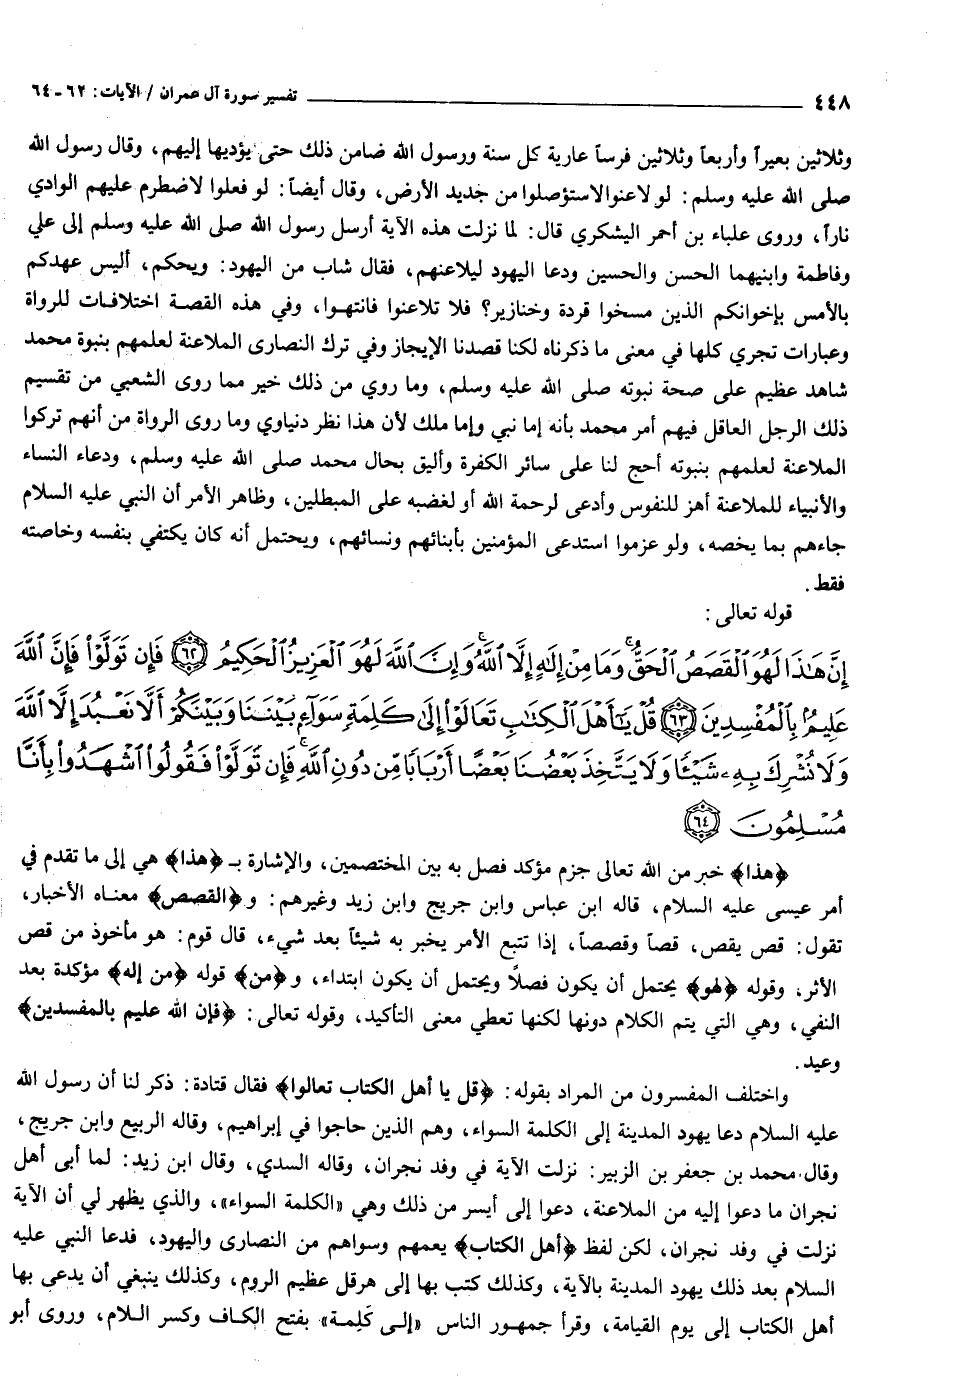 ٤٤٨ ــــــــــــ تفسير سورة آل عمران / الآيات: ٦٢ - ٦٤
وثلاثين بعيراً وأربعاً وثلاثين فرساً عارية كل سنة ورسول الله ضامن ذلك حتى يؤديها إليهم، وقال رسول الله
صلى الله عليه وسلم: لو لاعنوا لاستؤصلوا من جديد الأرض، وقال أيضاً: لو فعلوا لاضطرم عليهم الوادي
ناراً، وروى علباء بن أحمر اليشكري قال: لما نزلت هذه الآية أرسل رسول الله صلى الله عليه وسلم إلى علي
وفاطمة وابنيهما الحسن والحسين ودعا اليهود ليلاعنهم، فقال شاب من اليهود: ويحكم، أليس عهدكم
بالأمس بإخوانكم الذين مسخوا قردة وخنازير؟ فلا تلاعنوا فانتهوا، وفي هذه القصة اختلافات للرواة
وعبارات تجري كلها في معنى ما ذكرناه لكنا قصدنا الإيجاز وفي ترك النصارى الملاعنة لعلمهم بنبوة محمد
شاهد عظيم على صحة نبوته صلى الله عليه وسلم، وما روي من ذلك خير مما روى الشعبي من تقسيم
ذلك الرجل العاقل فيهم أمر محمد بأنه إما نبي وإما ملك لأن هذا نظر دنياوي وما روى الرواة من أنهم تركوا
الملاعنة لعلمهم بنبوته أحج لنا على سائر الكفرة وأليق بحال محمد صلى الله عليه وسلم، ودعاء النساء
والأنبياء للملاعنة أهز للنفوس وأدعى لرحمة الله أو لغضبه على المبطلين، وظاهر الأمر أن النبي عليه السلام
جاءهم بما يخصه، ولو عزموا استدعى المؤمنين بأبنائهم ونسائهم، ويحتمل أنه كان يكتفي بنفسه وخاصته
فقط.
قوله تعالى:
إِنَّ هَٰذَا لَهُوَ ٱلْقَصَصُ ٱلْحَقُّ ۚ وَمَا مِنْ إِلَٰهٍ إِلَّا ٱللَّهُ ۚ وَإِنَّ ٱللَّهَ لَهُوَ ٱلْعَزِيزُ ٱلْحَكِيمُ ٦٢ فَإِن تَوَلَّوْا۟ فَإِنَّ ٱللَّهَ
عَلِيمٌۢ بِٱلْمُفْسِدِينَ ٦٣ قُلْ يَٰٓأَهْلَ ٱلْكِتَٰبِ تَعَالَوْا۟ إِلَىٰ كَلِمَةٍ سَوَآءٍۭ بَيْنَنَا وَبَيْنَكُمْ أَلَّا نَعْبُدَ إِلَّا ٱللَّهَ
وَلَا نُشْرِكَ بِهِۦ شَيْـًٔا وَلَا يَتَّخِذَ بَعْضُنَا بَعْضًا أَرْبَابًا مِّن دُونِ ٱللَّهِ ۚ فَإِن تَوَلَّوْا۟ فَقُولُوا۟ ٱشْهَدُوا۟ بِأَنَّا
مُسْلِمُونَ ٦٤
﴿هذا﴾ خبر من الله تعالى جزم مؤكد فصل به بين المختصمين، والإشارة بـ ﴿هذا﴾ هي إلى ما تقدم في
أمر عيسى عليه السلام، قاله ابن عباس وابن جريج وابن زيد وغيرهم: و﴿القصص﴾ معناه الأخبار،
تقول: قص يقص، قصاً وقصصاً، إذا تتبع الأمر يخبر به شيئاً بعد شيء، قال قوم: هو مأخوذ من قص
الأثر، وقوله ﴿لهو﴾ يحتمل أن يكون فصلاً ويحتمل أن يكون ابتداء، و﴿من﴾ قوله ﴿من إله﴾ مؤكدة بعد
النفي، وهي التي يتم الكلام دونها لكنها تعطي معنى التأكيد، وقوله تعالى: ﴿فإن الله عليم بالمفسدين﴾
وعيد.
واختلف المفسرون من المراد بقوله: ﴿قل يا أهل الكتاب تعالوا﴾ فقال قتادة: ذكر لنا أن رسول الله
عليه السلام دعا يهود المدينة إلى الكلمة السواء، وهم الذين حاجوا في إبراهيم، وقاله الربيع وابن جريج،
وقال محمد بن جعفر بن الزبير: نزلت الآية في وفد نجران، وقاله السدي، وقال ابن زيد: لما أبى أهل
نجران ما دعوا إليه من الملاعنة، دعوا إلى أيسر من ذلك وهي «الكلمة السواء»، والذي يظهر لي أن الآية
نزلت في وفد نجران، لكن لفظ ﴿أهل الكتاب﴾ يعمهم وسواهم من النصارى واليهود، فدعا النبي عليه
السلام بعد ذلك يهود المدينة بالآية، وكذلك كتب بها إلى هرقل عظيم الروم، وكذلك ينبغي أن يدعى بها
أهل الكتاب إلى يوم القيامة، وقرأ جمهور الناس «إلى كَلِمة» بفتح الكاف وكسر اللام، وروى أبو